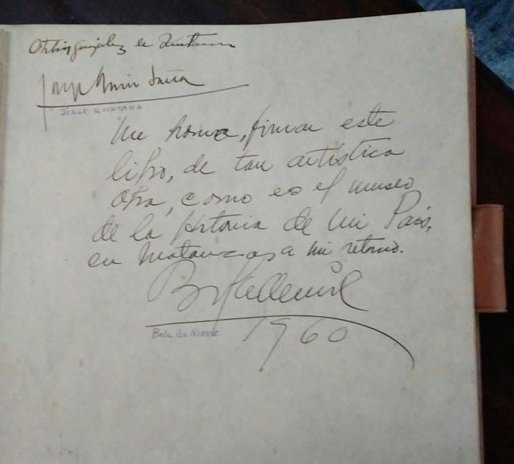 González de Quintana
Jorge Quintana
JORGE QUINTANA
Me honra, firmar este
libro, de tan artística
obra, como es el museo
de la Historia de Mi País,
en Matanzas a mi retorno.
Bola de Nieve
BOLA DE NIEVE
1960